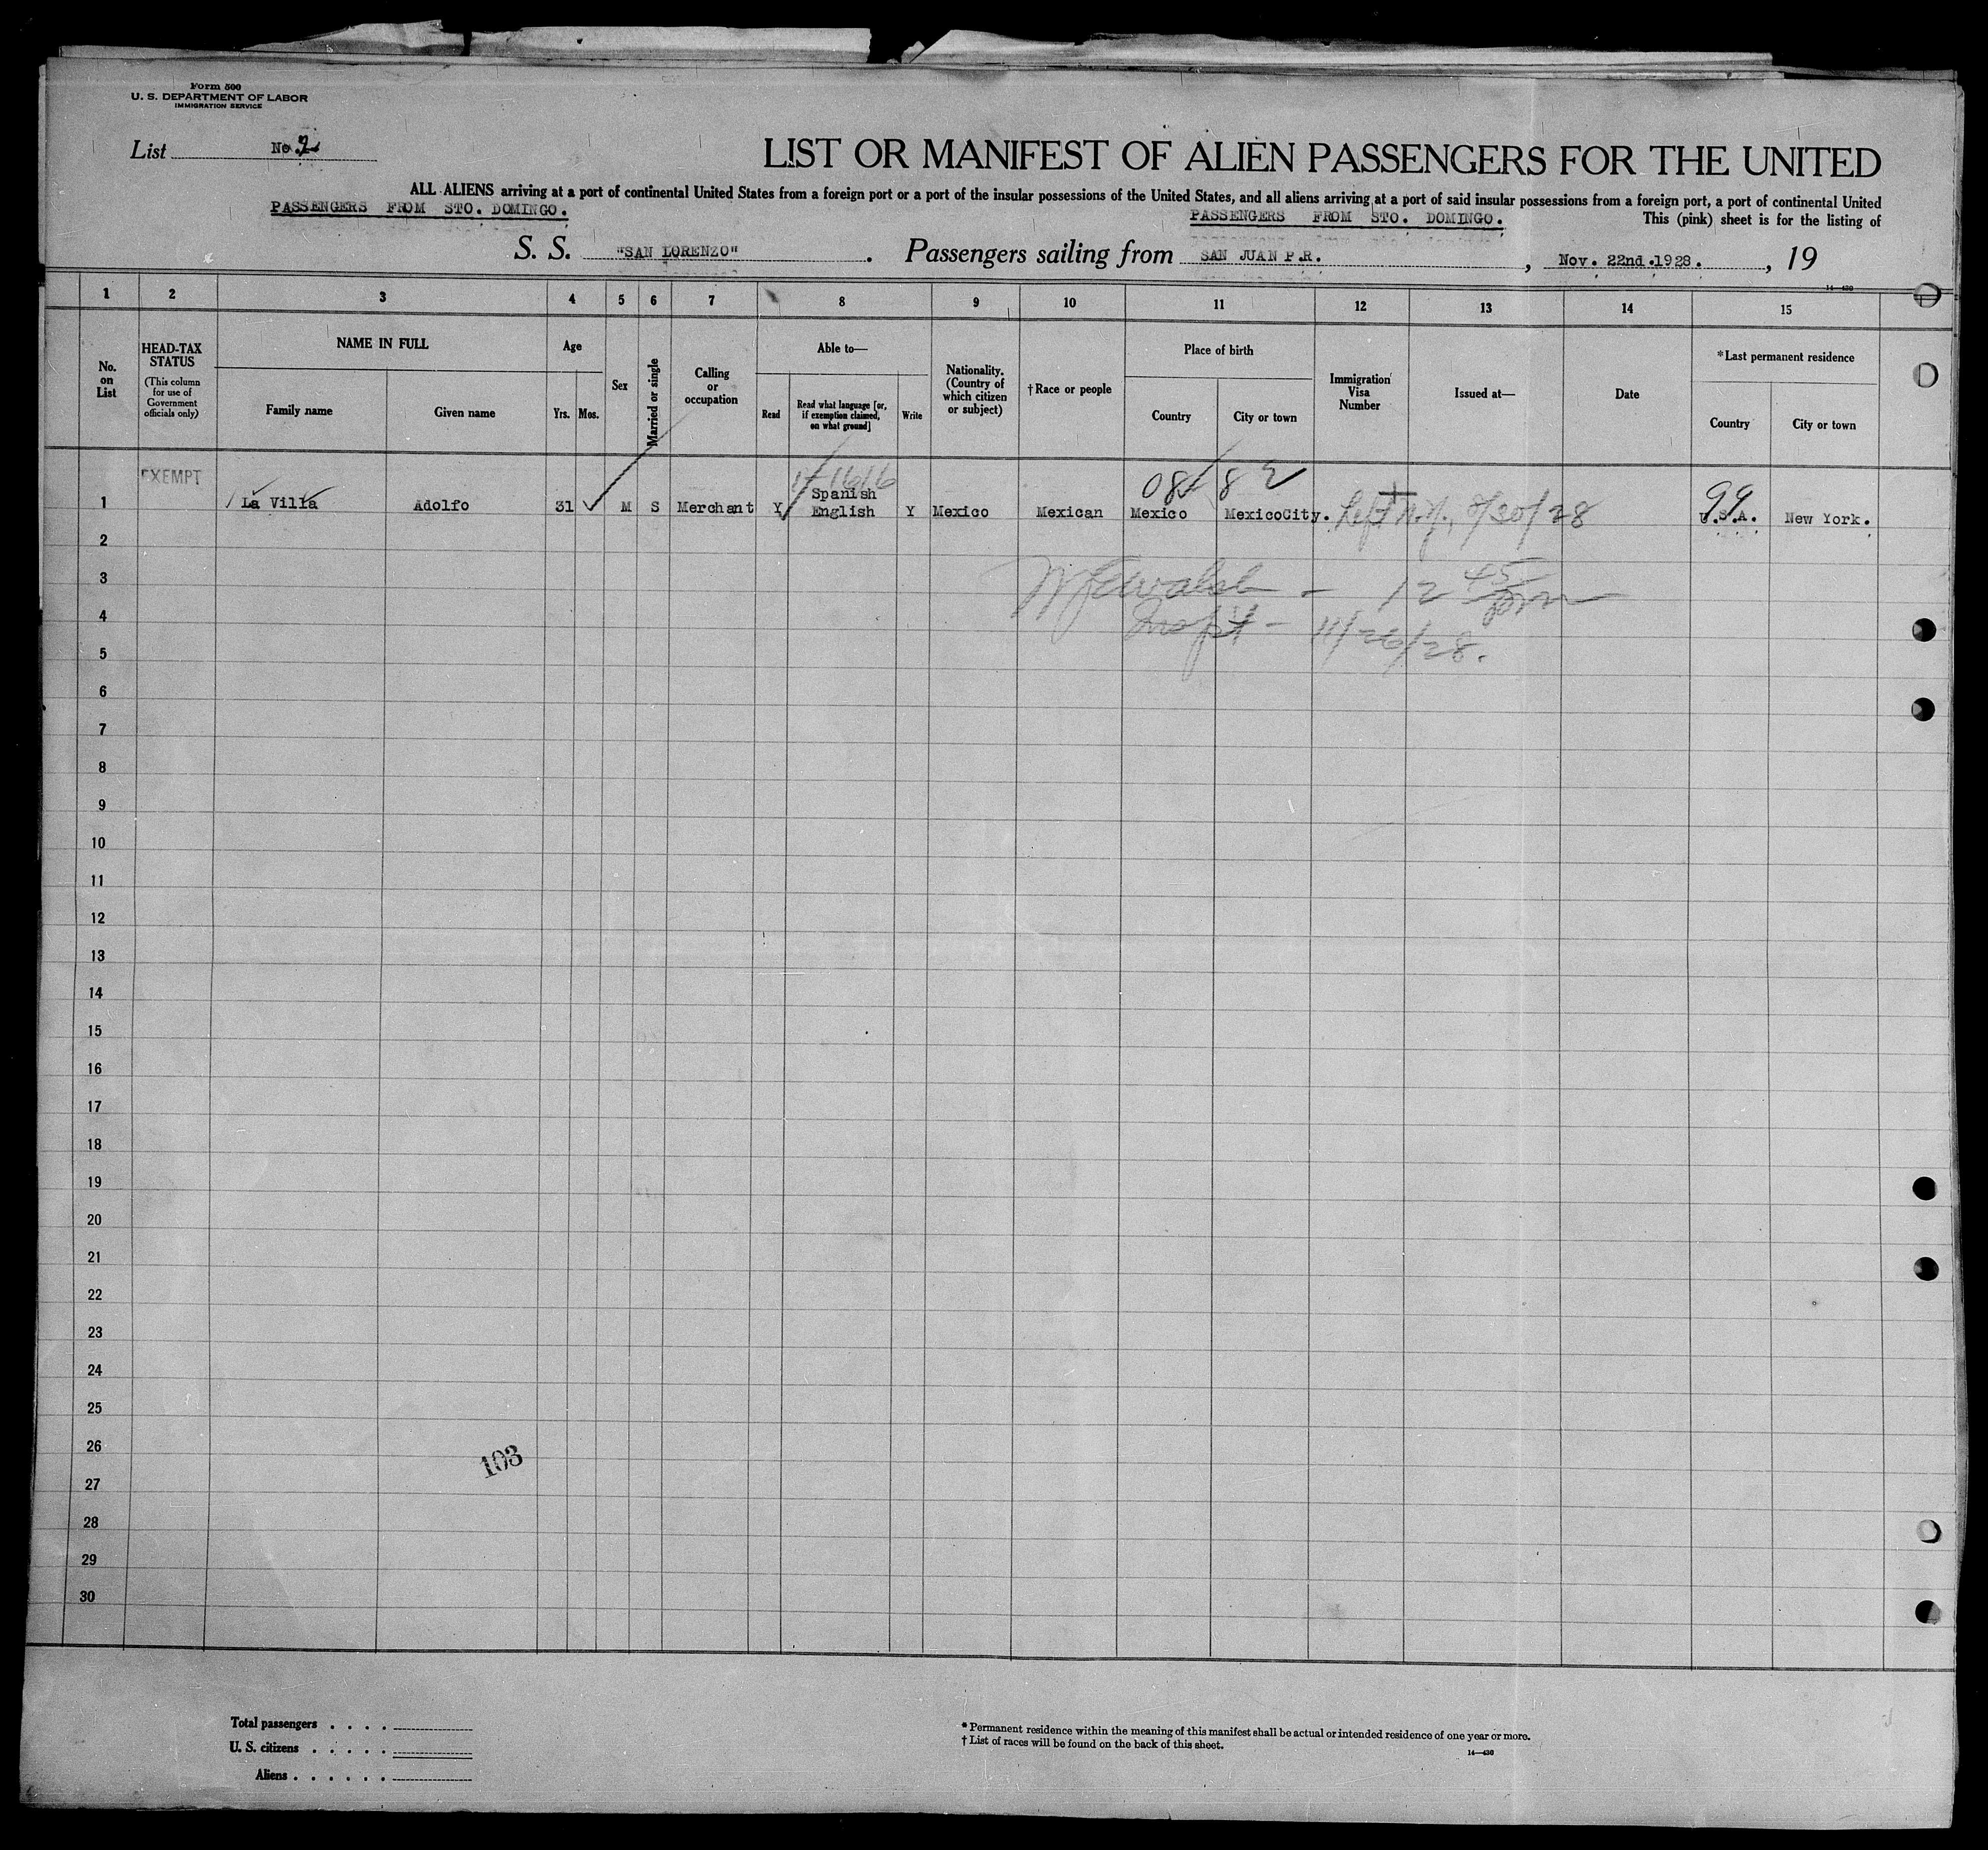 Form 500
U. S. DEPARTMENT OF LABOR
IMMIGRATION SERVICE
List No. 2
LIST OR MANIFEST OF ALIEN PASSENGERS FOR THE UNITED
ALL ALIENS arriving at a port of continental United States from a foreign port or a port of the insular possessions of the United States, and all aliens arriving at a port of said insular possessions from a foreign port, a port of continental United
PASSENGERS FROM STO. DOMINGO. PASSENGERS FROM STO. DOMINGO. This (pink) sheet is for the listing of
S. S. "SAN LORENZO" . Passengers sailing from SAN JUAN P.R. , Nov. 22nd.1928. , 19
14—430
1 2 3 4 5 6 7 8 9 10 11 12 13 14 15
No. on List
HEAD-TAX STATUS
(This column for use of Government officials only)
NAME IN FULL
Family name
Given name
Age
Yrs.
Mos.
Sex
Married or single
Calling or occupation
Able to—
Read
Read what language [or, if exemption claimed, on what ground]
Write
Nationality. (Country of which citizen or subject)
†Race or people
Place of birth
Country
City or town
Immigration Visa Number
Issued at—
Date
*Last permanent residence
Country
City or town
EXEMPT
08 82 99
1 La Villa Adolfo 31 M S Merchant Y Spanish English Y Mexico Mexican Mexico MexicoCity. Left N.Y., /30/28 U.S.A. New York.
2
3
12 45 pm
4
11/26/28.
5
6
7
8
9
10
11
12
13
14
15
16
17
18
19
20
21
22
23
24
25
26
103
27
28
29
30
Total passengers . . . .
U. S. citizens . . . . .
Aliens . . . . . .
* Permanent residence within the meaning of this manifest shall be actual or intended residence of one year or more.
† List of races will be found on the back of this sheet.
14—430